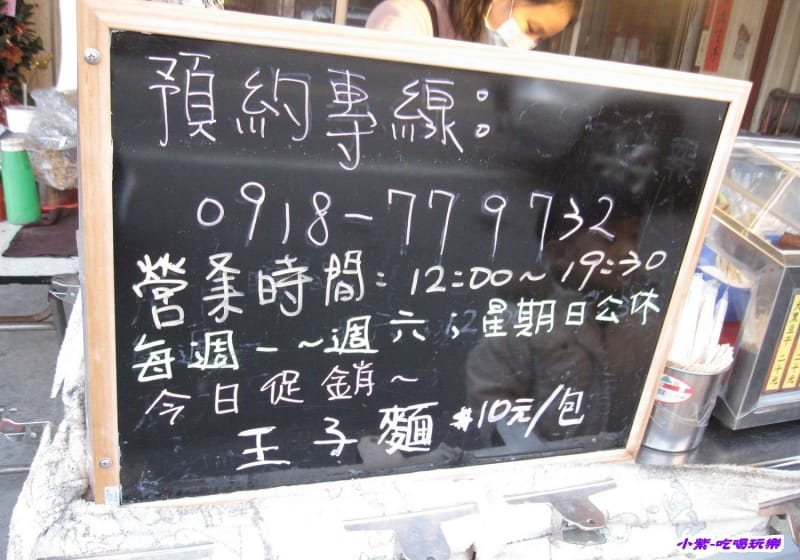 預約專線:
0918-779732
營業時間: 12:00~19:30
每週一~週六，星期日公休
今日促銷~
王子麵 #10元/包
黑豆干 二十元
小紫-吃喝玩樂